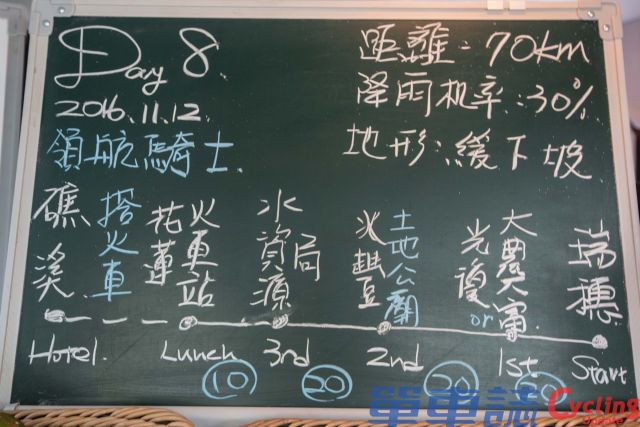 Day 8.
2016.11.12.
領航騎士.
距離:70km
降雨机率:30%
地形:緩下坡
礁溪
搭火車
花蓮
火車站
水資源局
土地公廟
光復
or
大農大富
瑞穗
Hotel.
Lunch
3rd
2nd
1st.
Start
10
20
20
單車誌
Cycling